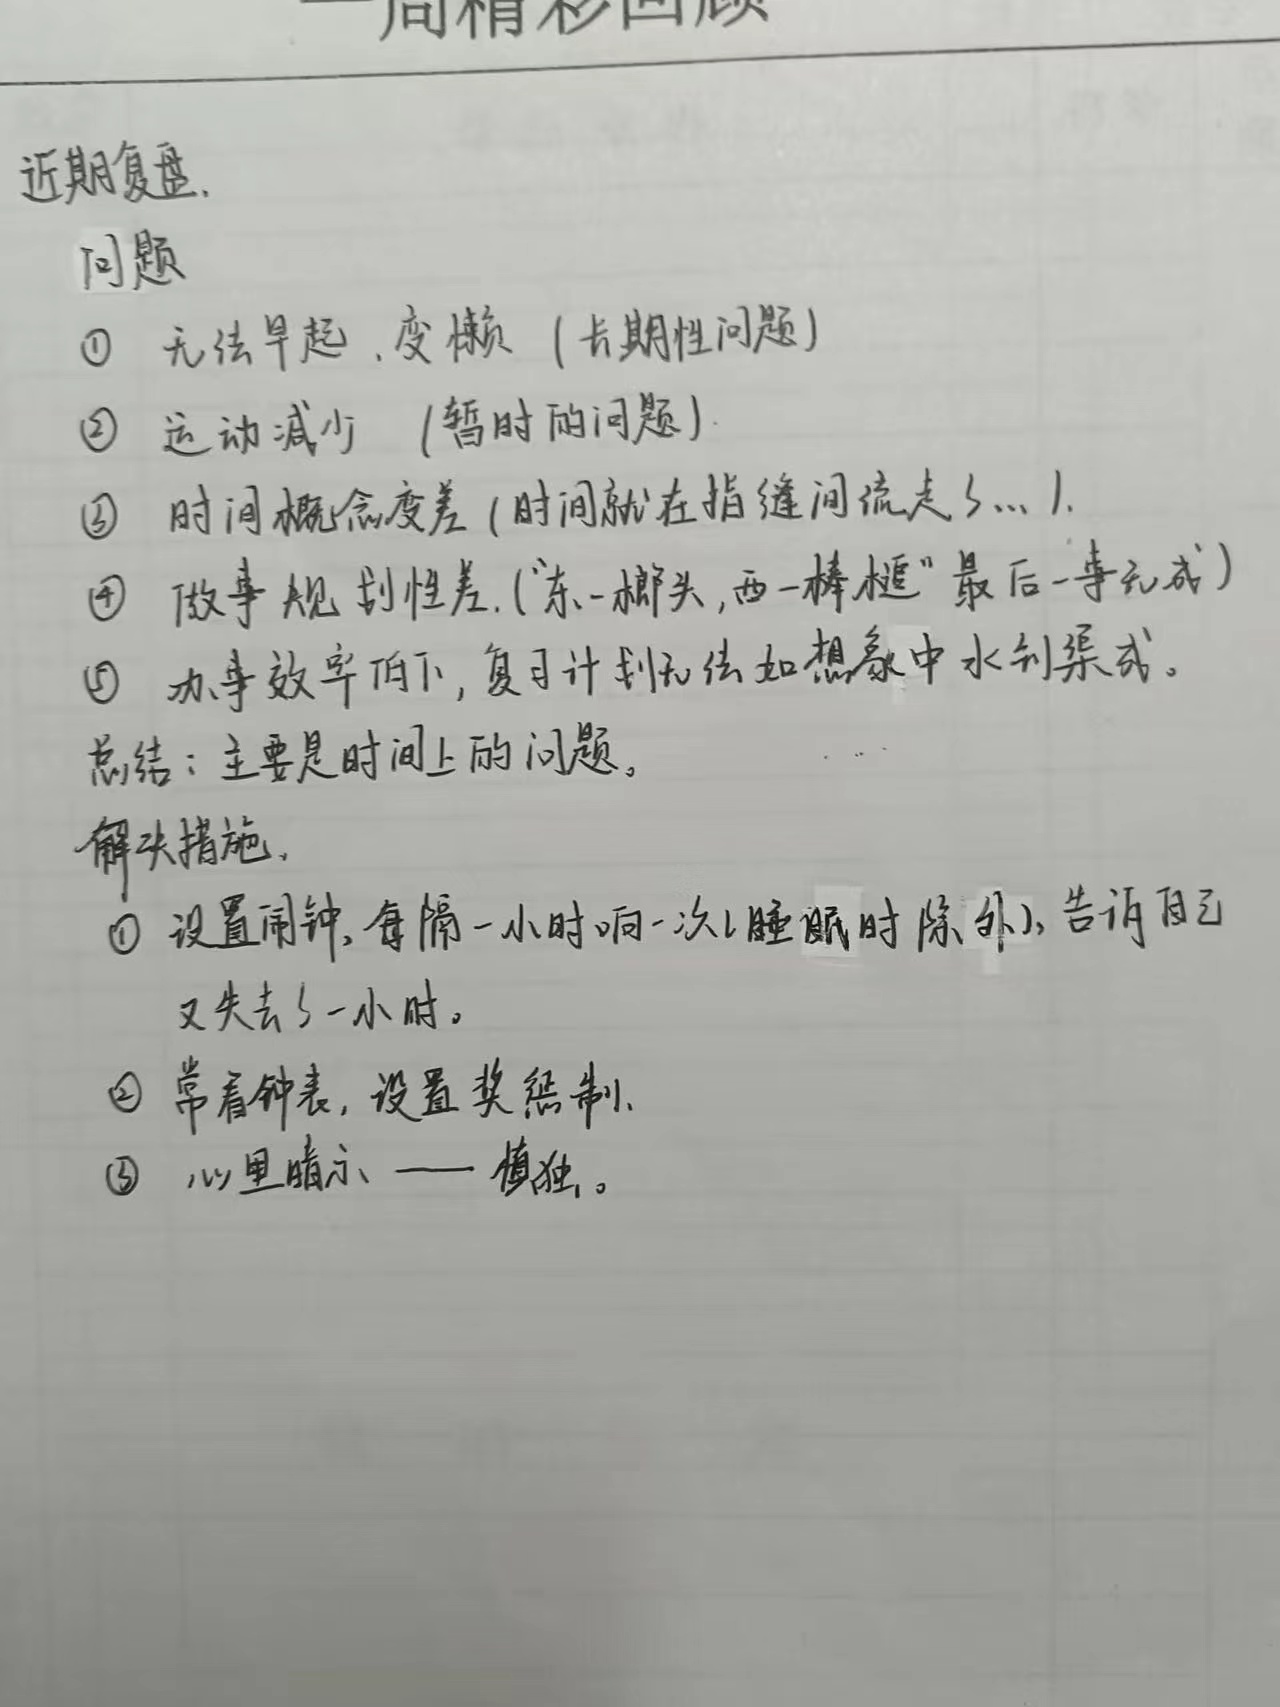 一周精彩回顾
近期复盘.
问题
① 无法早起、变懒（长期性问题）
② 运动减少 （暂时的问题）.
③ 时间概念变差（时间就在指缝间流走了...）.
④ 做事规划性差.（“东一榔头，西一棒槌”最后一事无成）
⑤ 办事效率低下，复习计划无法如想象中水到渠成。
总结：主要是时间上的问题。
解决措施.
① 设置闹钟、每隔一小时响一次（睡眠时除外）、告诉自己
又失去了一小时。
② 常看钟表，设置奖惩制、
③ 心里暗示 —— 慎独。